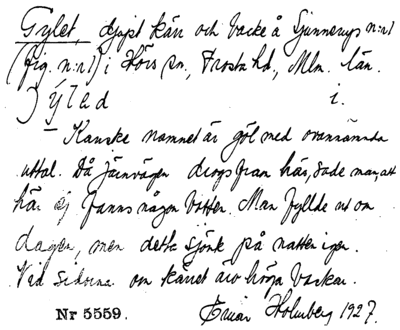 Gylet, djupt kärr och backe å Sjunnerups n:o 1
(fig. n:o 1) i Hörs sn, Frosta hd, Mlm. län.
J ý l ə d i.
Kanske namnet är göl med ovannämnda
uttal. Då järnvägen drogs fram här, sade man, att
här ej fanns någon botten. Man fyllde ut om
dagen, men detta sjönk på natten igen.
Vid sidorna om kärret äro höga backar.
Nr 5559. Einar Holmberg 1927.